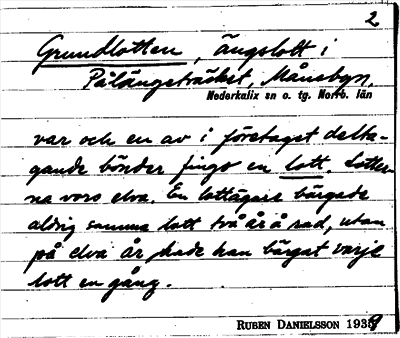 2
Grundlotten, ängslott i
Pålängeträsket, Månsbyn,
Nederkalix sn o. tg. Norrb. län
var och en av i företaget delta-
gande bönder fingo en lott. Lotter-
na voro elva. En lottägare bärgade
aldrig samma lott två år å rad, utan
på elva år hade han bärgat varje
lott en gång.
RUBEN DANIELSSON 1939